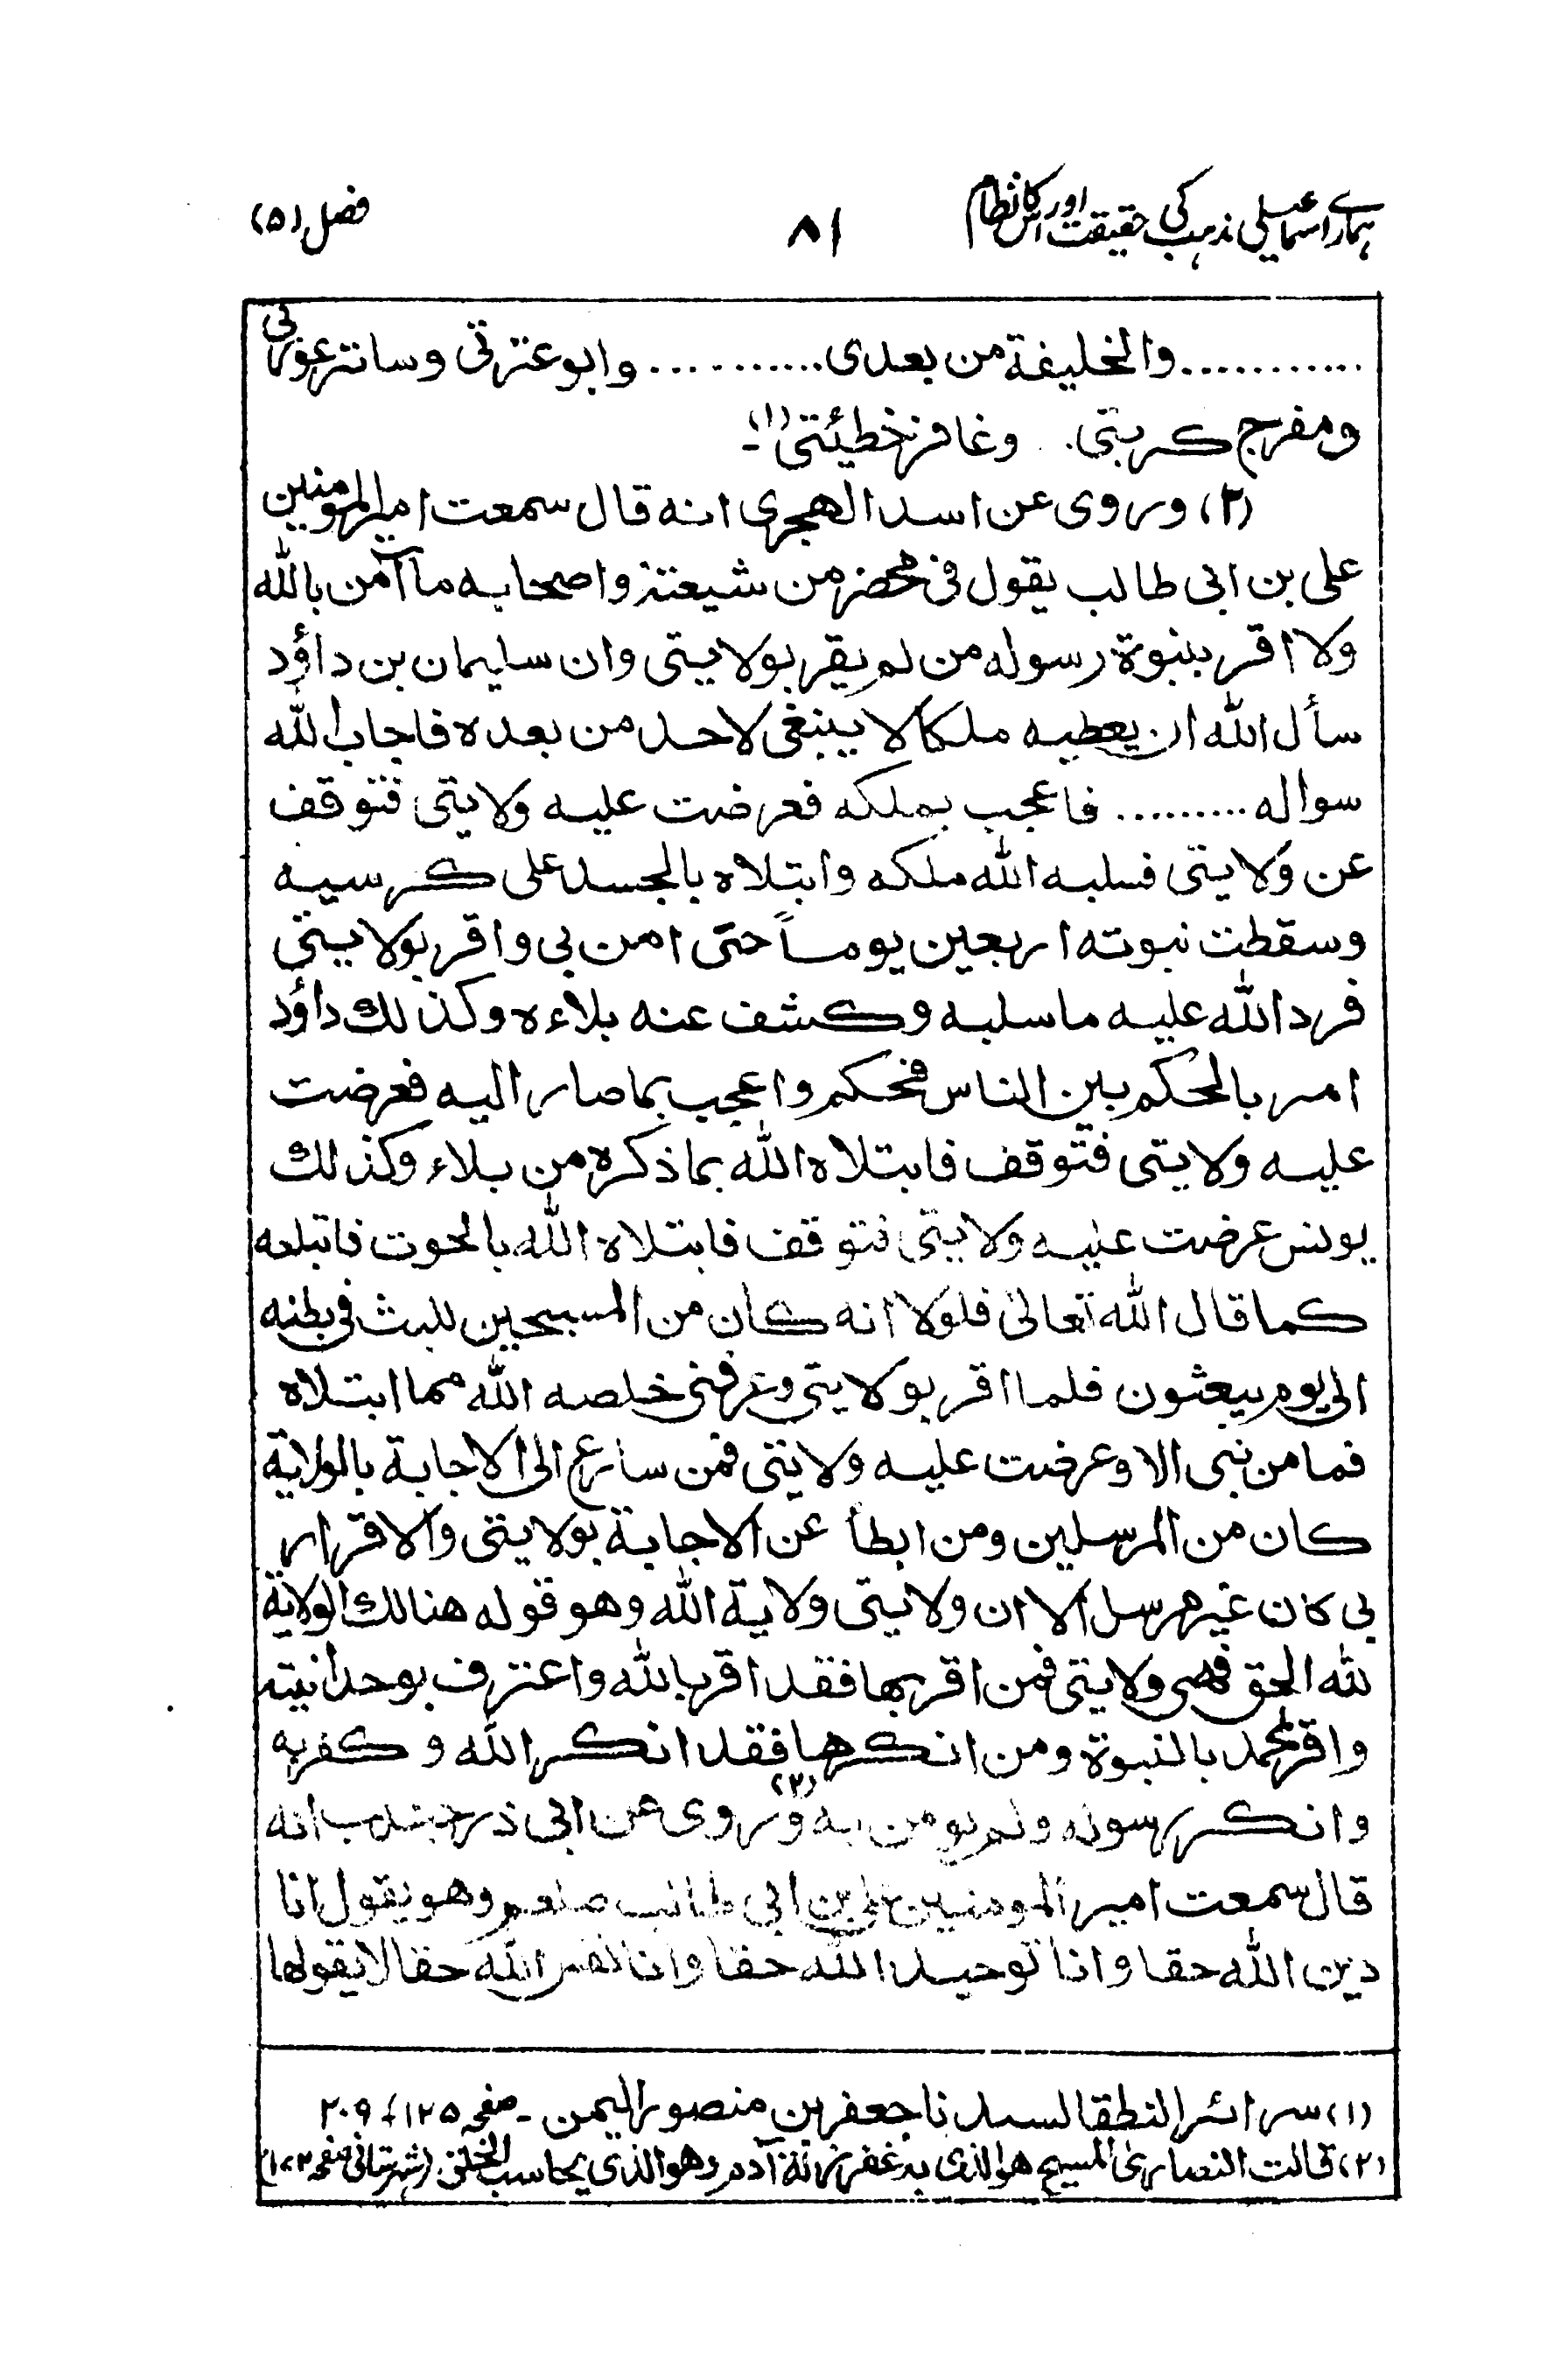 ہمارے اسماعیلی مذہب کی حقیقت اور اس کا نظام ۸۱ فصل (۵)
............والخلیفة من بعدی............وابو عترتی وساتر عورتی
ومفرج کربتی. وغافر خطیئتی(۱)۔
(۲) وروی عن اسد الهجری انه قال سمعت امیر المومنین
علی بن ابی طالب یقول فی محضر من شیعته واصحابه ما آمن بالله
ولا اقر بنبوة رسوله من لم یقر بولایتی وان سلیمان بن داؤد
سأل الله ان یعطیه ملکا لا ینبغی لاحد من بعده فاجاب الله
سواله ......... فاعجب بملکه فعرضت علیه ولایتی فتوقف
عن ولایتی فسلبه الله ملکه وابتلاه بالجسد علی کرسیه
وسقطت نبوته اربعین یوماً حتی امن بی واقر بولایتی
فرد الله علیه ما سلبه وکشف عنه بلاءه وکذلك داؤد
امر بالحکم بین الناس فحکم واعجب بما صار الیه فعرضت
علیه ولایتی فتوقف فابتلاه الله بما ذکره من بلاء وکذلك
یونس عرضت علیه ولایتی فتوقف فابتلاه الله بالحوت فابتلعه
کما قال الله تعالیٰ فلولا انه کان من المسبحین للبث فی بطنه
الی یوم یبعثون فلما اقر بولایتی وعرفنی خلصه الله مما ابتلاه
فما من نبی الا وعرضت علیه ولایتی فمن سارع الی الاجابة بالولایة
کان من المرسلین ومن ابطأ عن الاجابة بولایتی والاقرار
بی کان غیر مرسل الا ان ولایتی ولایة الله وهو قوله هنالك الولایة
لله الحق فهی ولایتی فمن اقر بها فقد اقر بالله واعترف بوحدانیته
واقر بمحمد بالنبوة ومن انکرها فقد انکر الله وکفر به
وانکر رسوله ولم یومن به (۳) وروی عن ابی ذر جندب انه
قال سمعت امیر المومنین علی بن ابی طالب صلعم وهو یقول انا
دین الله حقا وانا توحید الله حقا وانا نفس الله حقا لا یقولها
(۱) سرائر النطقا لسیدنا جعفر بن منصور الیمن۔ صفحہ ۱۲۵ و ۲۰۹
(۲) قالت النصاریٰ المسیح هو الذی به غفر زلة آدم وهو الذی یحاسب الخلق (شہرستانی صفحہ ۱۰۳)